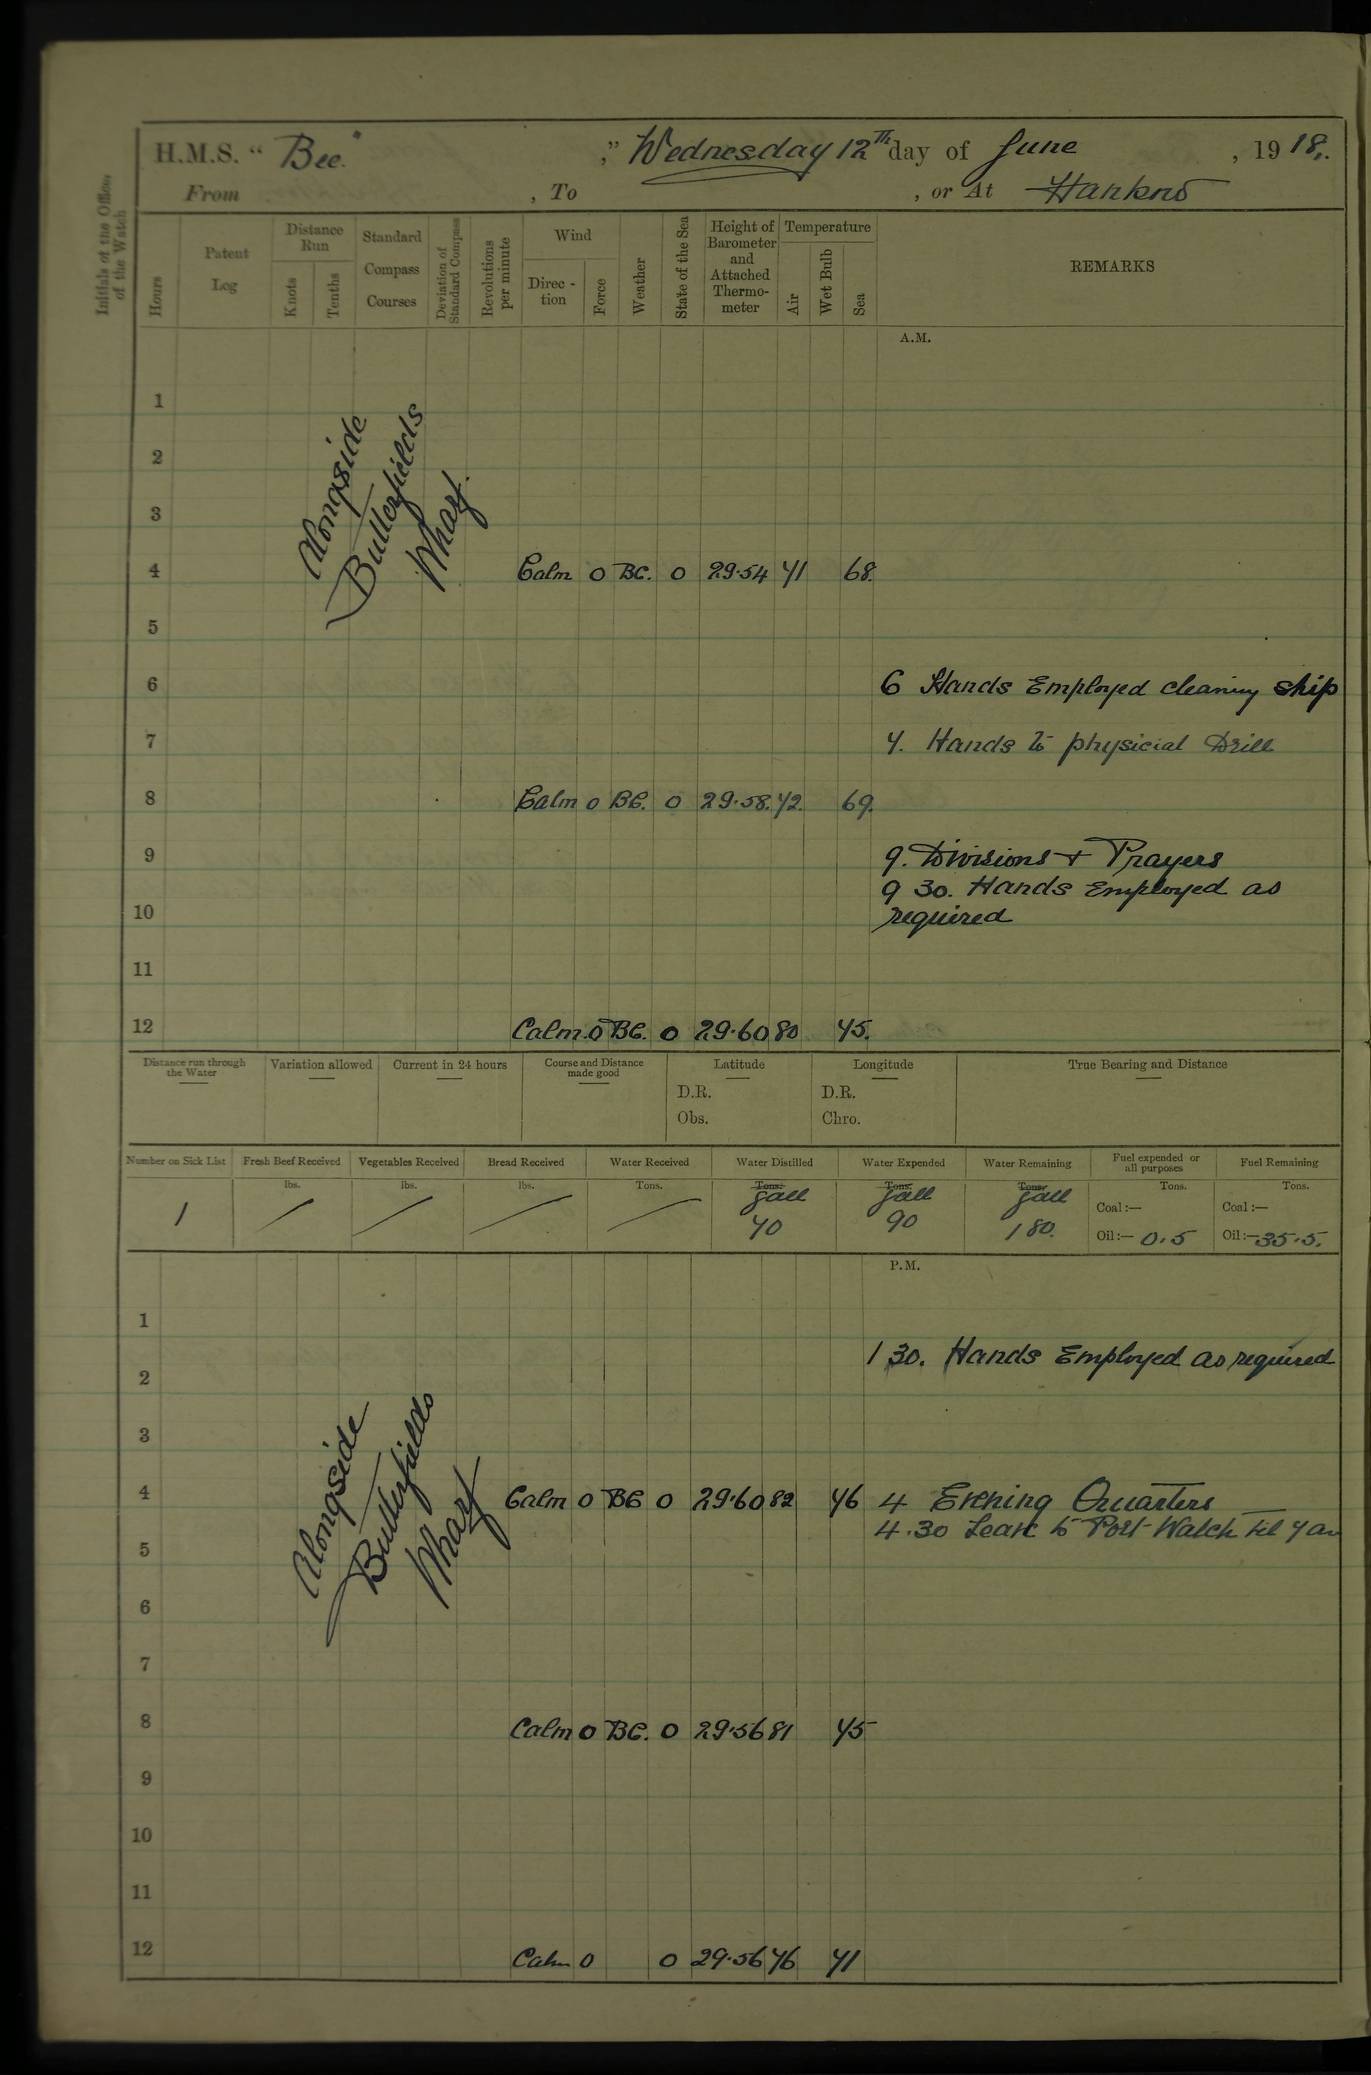 H.M.S. “ Bee. ,” Wednesday 12th day of June , 19 18.
From , To , or At Hankow
Initials of the Officer of the Watch
Hours
Patent Log
Distance Run
Knots
Tenths
Standard Compass Courses
Deviation of Standard Compass
Revolutions per minute
Wind
Direc-tion
Force
Weather
State of the Sea
Height of Barometer and Attached Thermo-meter
Temperature
Air
Wet Bulb
Sea
REMARKS
A.M.
1
2
3
Alongside
Butterfields
Wharf.
4 Calm 0 BC. 0 29.54 71 68.
5
6 6 Hands Employed cleaning ship
7 7. Hands to physicial Drill
8 Calm 0 BC. 0 29.58. 72. 69.
9 9. Divisions + Prayers
9 30. Hands Employed as
10 required
11
12 Calm. 0 BC. 0 29.60 80 75.
Distance run through the Water
Variation allowed
Current in 24 hours
Course and Distance made good
Latitude
D.R.
Obs.
Longitude
D.R.
Chro.
True Bearing and Distance
Number on Sick List
1
Fresh Beef Received
lbs.
/
Vegetables Received
lbs.
/
Bread Received
lbs.
/
Water Received
Tons.
/
Water Distilled
Tons.
Gall
70
Water Expended
Tons.
Gall
90
Water Remaining
Tons.
Gall
180.
Fuel expended or all purposes
Tons.
Coal :—
Oil :— 0.5
Fuel Remaining
Tons.
Coal :—
Oil :— 35.5.
P.M.
1
1 30. Hands Employed as required
2
3
Alongside
Butterfields
Wharf
4 Calm 0 BC 0 29.60 82 76 4 Evening Quarters
4.30 Leave to Port Watch til 7 am
5
6
7
8 Calm 0 BC. 0 29.56 81 75
9
10
11
12 Calm 0 0 29.56 76 71